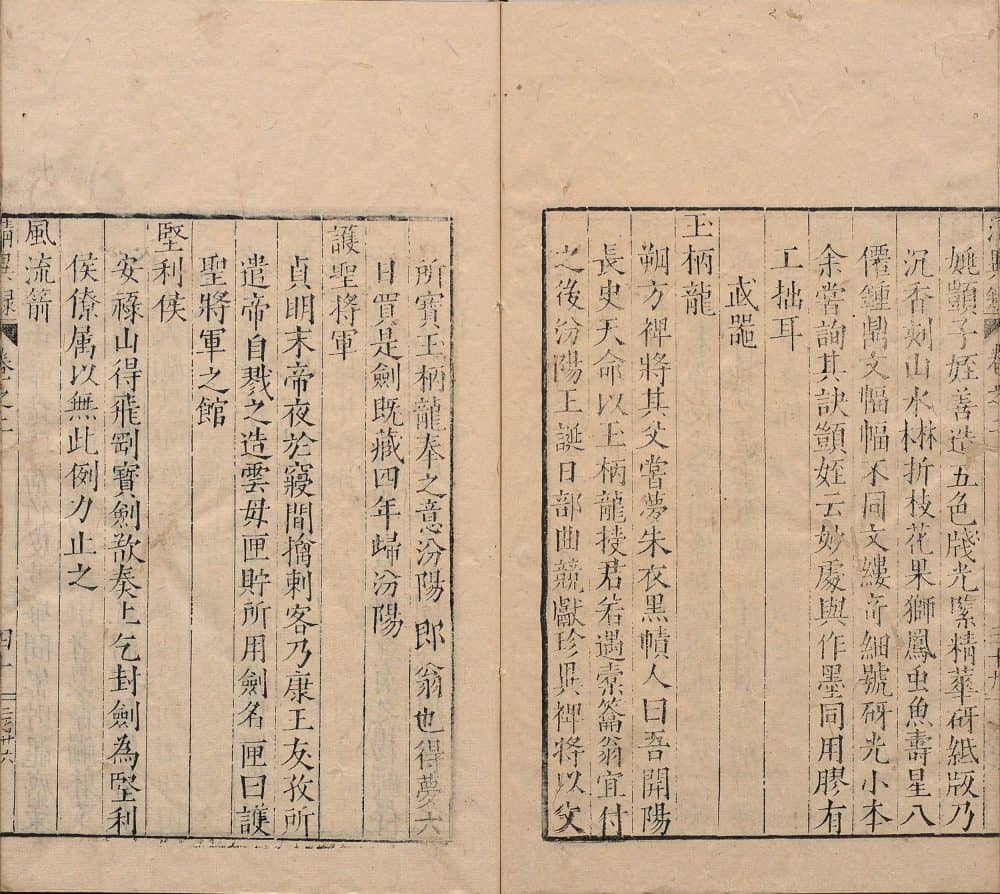 清異錄
卷之
三十九
姚顗子姪善造五色牋光緊精華砑紙版乃
沉香刻山水林折枝花果獅鳳虫魚壽星八
僊鍾鼎文幅幅不同文縷奇細號砑光小本
余嘗詢其訣顗姪云妙處與作墨同用膠有
工拙耳
武器
玉柄龍
朔方裨將其父嘗夢朱衣黑幘人曰吾開陽
長史天命以玉柄龍授君若遇橐籥翁宜付
之後汾陽王誕日部曲競獻珍異裨將以父
所寶玉柄龍奉之意汾陽郎翁也得夢六
日買是劍既藏四年歸汾陽
護聖將軍
貞明末帝夜於寢間擒刺客乃康王友孜所
遣帝自戮之造雲母匣貯所用劍名匣曰護
聖將軍之館
堅利侯
安祿山得飛剄寶劍欲奏上乞封劍為堅利
侯僚属以無此例力止之
風流箭
清異錄
卷之
四十
三廿六